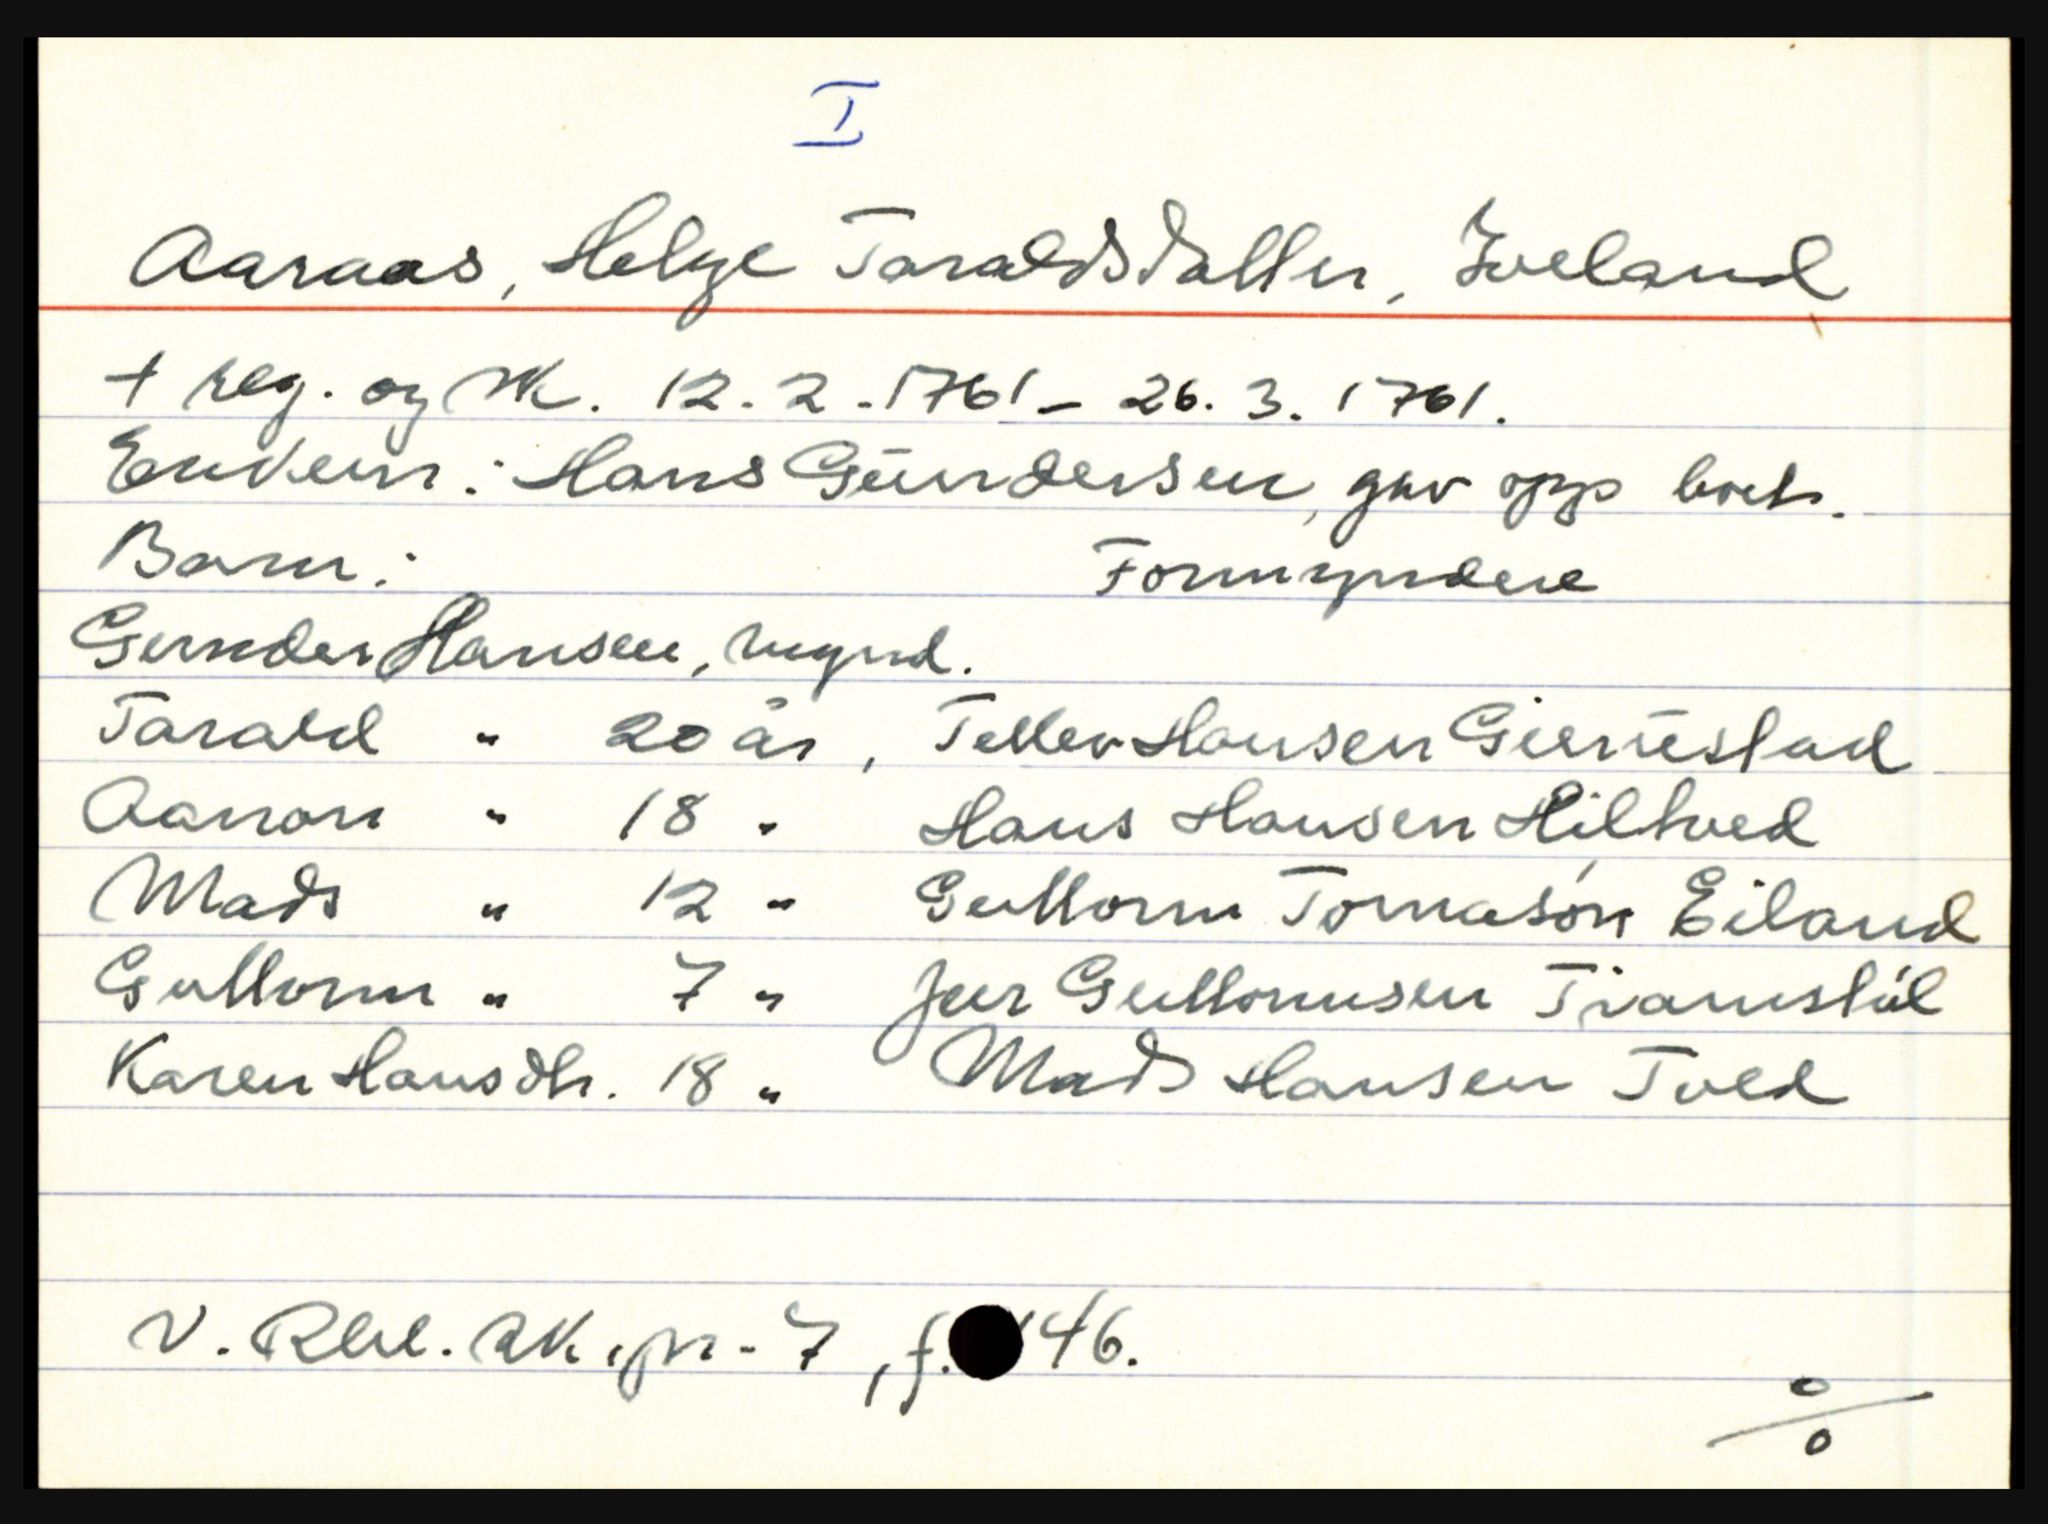 I
Aaraas, Helge Taraldsdatter, Iveland
+ reg. og sk. 12.2.1761 - 26.3.1761.
Enkem: Hans Gundersen, gav opp boet.
Barn: Formyndere
Gunder Hansen, mynd.
Tarald " 20 år, Tellev Hansen Gierustad
Aanon " 18 " Hans Hansen Hiltved
Mads " 12 " Guttorm Tomasón Eiland
Guttorm " 7 " Jens Guttormsen Tiamstúl
Karen Hansdtr. 18 " Mads Hansen Tved
V. Rbl. sk.pr. 7, f. 146.
%